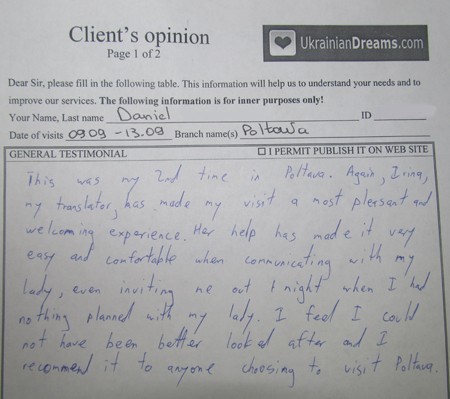 Client's opinion
Page 1 of 2
UkrainianDreams.com
Dear Sir, please fill in the following table. This information will help us to understand your needs and to
improve our services. The following information is for inner purposes only!
Your Name, Last name Daniel ID
Date of visits 09.09 - 13.09 Branch name(s) Poltava
GENERAL TESTIMONIAL ☐ I PERMIT PUBLISH IT ON WEB SITE
This was my 2nd time in Poltava. Again, Irina,
my translator, has made my visit a most pleasant and
welcoming experience. Her help has made it very
easy and comfortable when communicating with my
lady, even inviting me out 1 night when I had
nothing planned with my lady. I feel I could
not have been better looked after and I
recommend it to anyone choosing to visit Poltava.